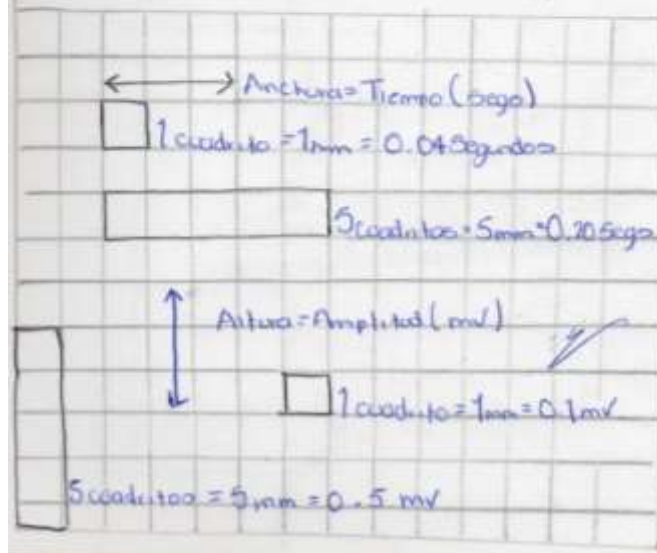 Anchura = Tiempo (segs)
1 cuadrito = 1mm = 0.04 Segundos
5 cuadritos = 5mm = 0.20 segs
Altura = Amplitud (mV)
1 cuadrito = 1mm = 0.1 mV
5 cuadritos = 5mm = 0.5 mV